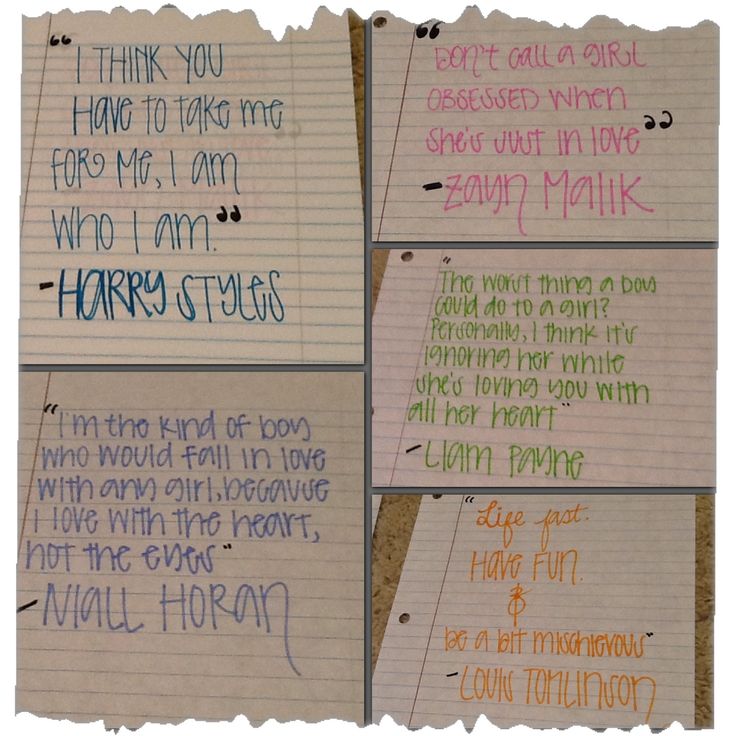 "I THINK YOU
HAVE TO TAKE ME
FOR ME, I AM
WHO I AM."
-HARRY STYLES
"DON'T CALL A GIRL
OBSESSED WHEN
SHE'S JUST IN LOVE"
-ZAYN MALIK
"The worst thing a boy
could do to a girl?
Personally, I think it's
ignoring her while
she's loving you with
all her heart"
-LIAM PAYNE
"I'm the kind of boy
who would fall in love
with any girl, because
I love with the heart,
not the eyes"
-NIALL HORAN
"Life fast.
HAVE FUN.
&
be a bit mischievous"
-LOUIS TOMLINSON